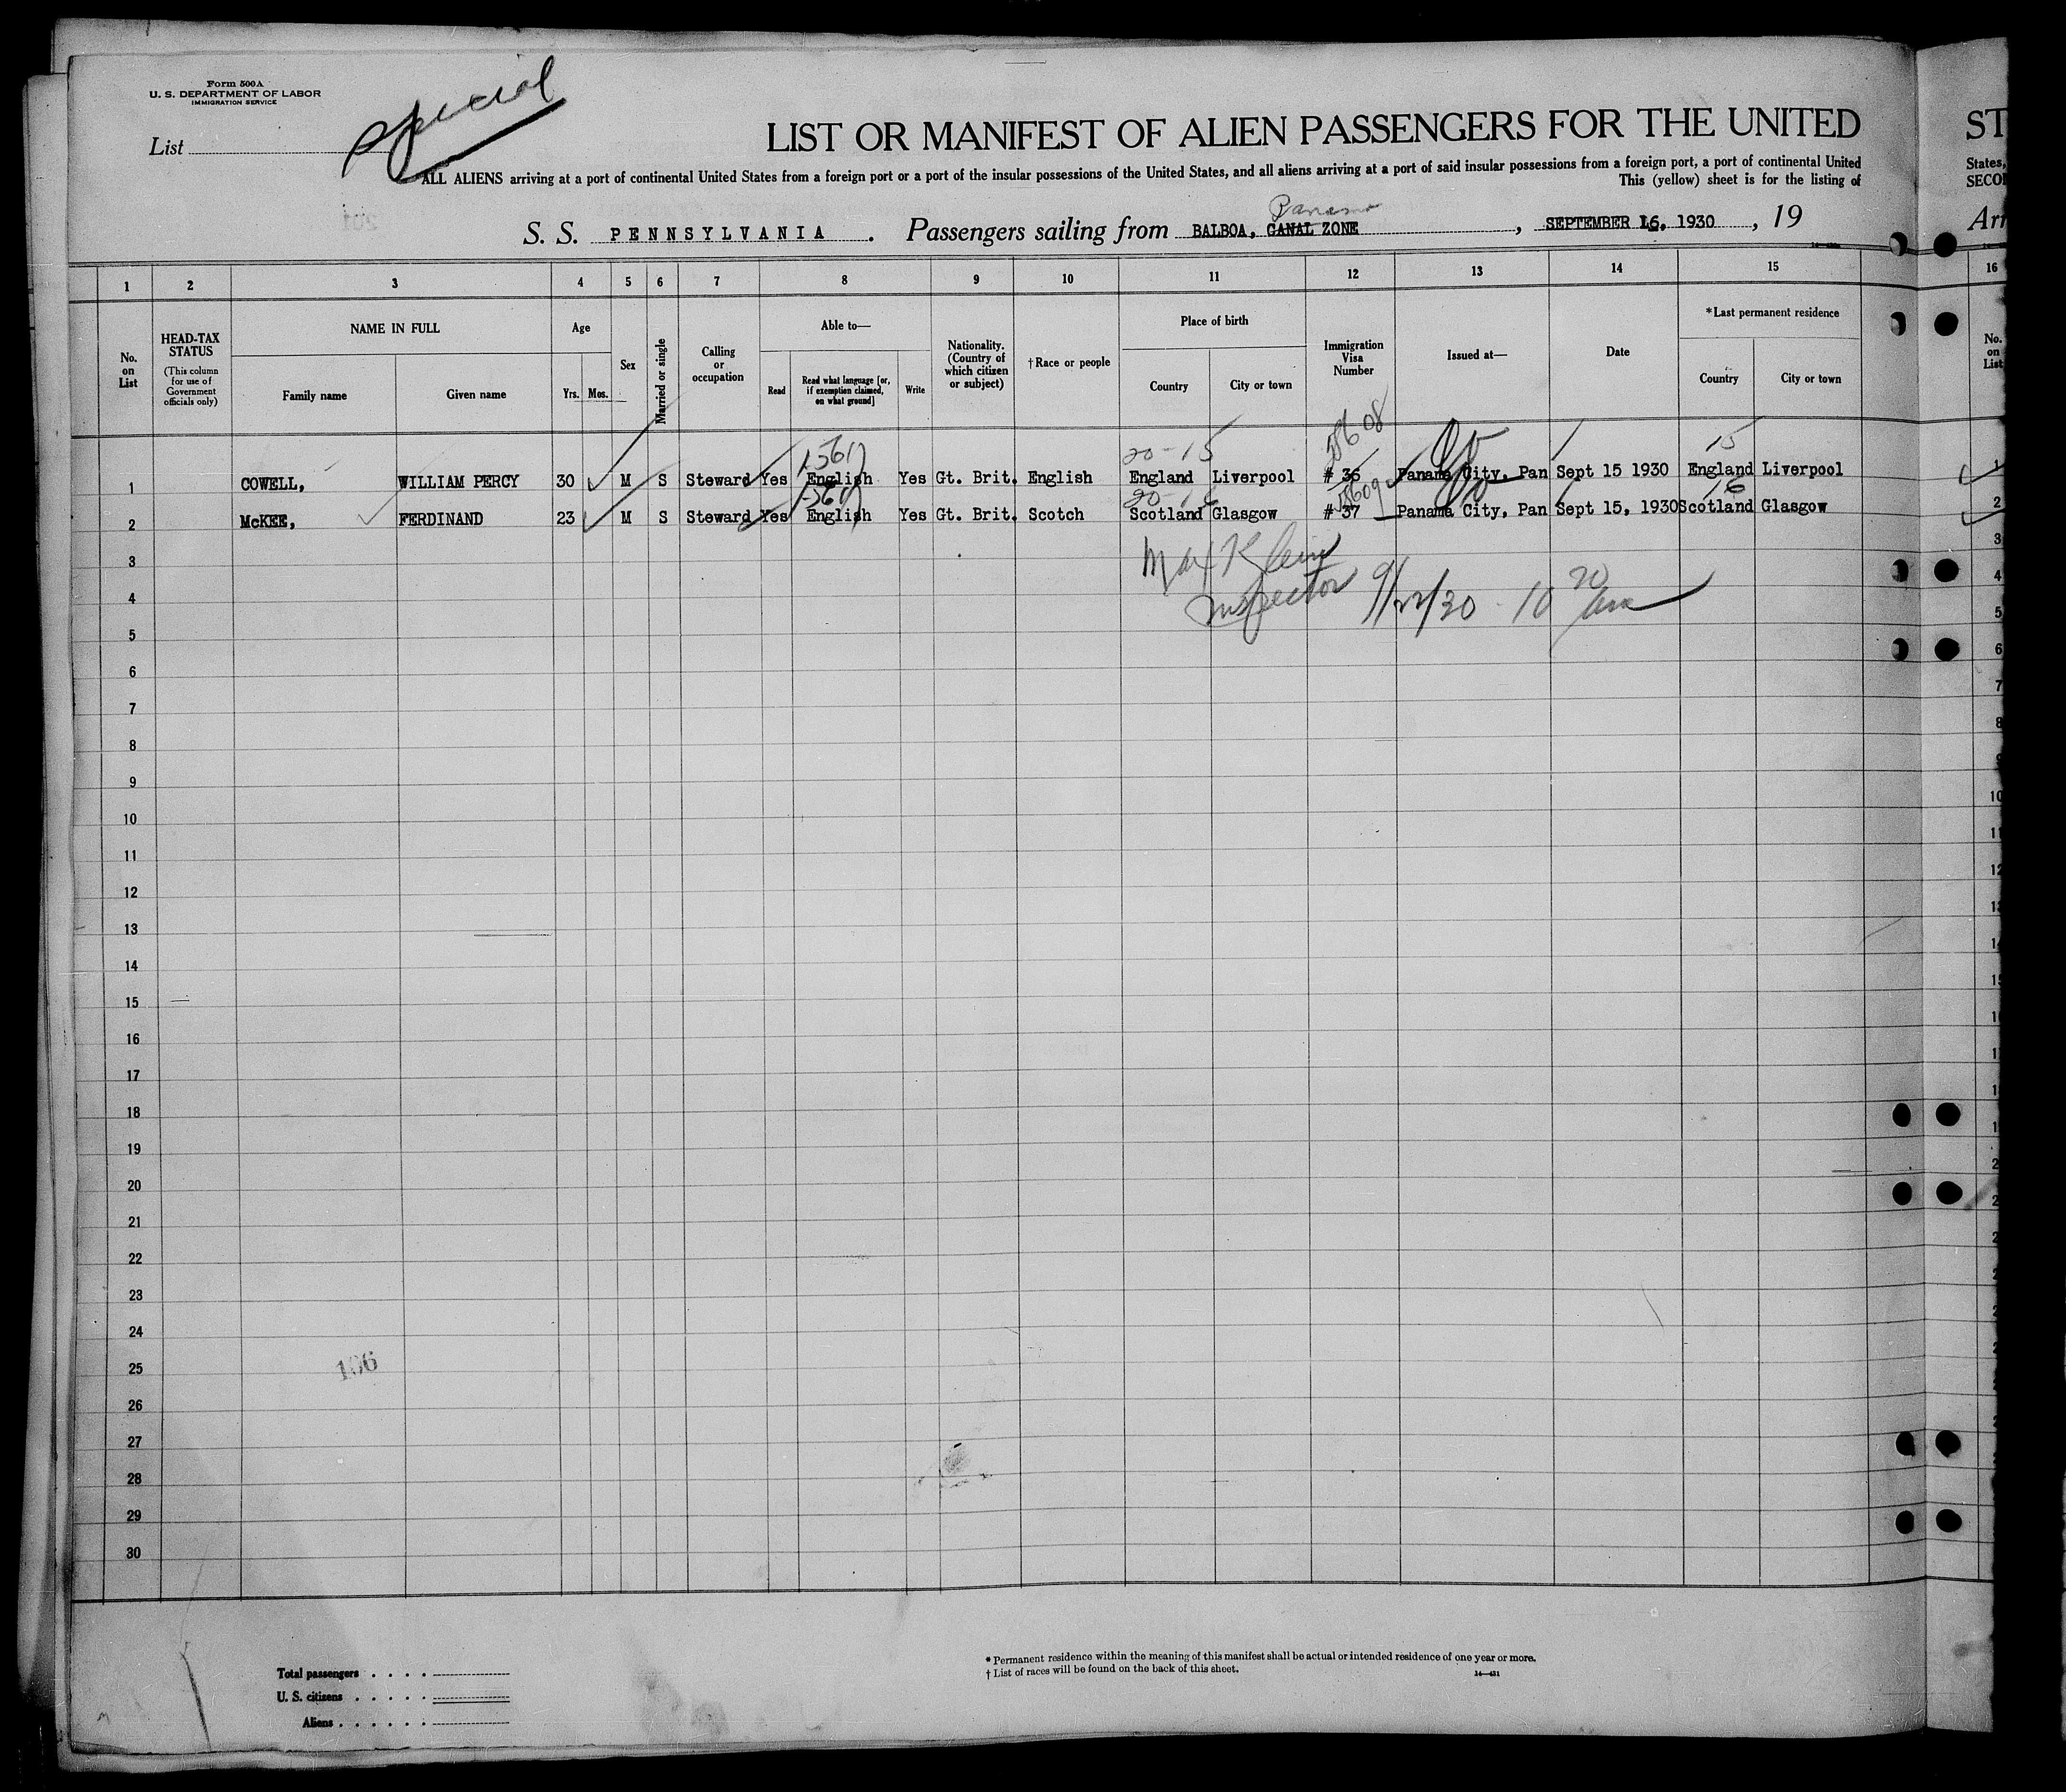 Form 500A
U. S. DEPARTMENT OF LABOR
IMMIGRATION SERVICE
List
Special
LIST OR MANIFEST OF ALIEN PASSENGERS FOR THE UNITED
ST
ALL ALIENS arriving at a port of continental United States from a foreign port or a port of the insular possessions of the United States, and all aliens arriving at a port of said insular possessions from a foreign port, a port of continental United
States,
This (yellow) sheet is for the listing of
SECO
Panama
S. S. PENNSYLVANIA. Passengers sailing from BALBOA, CANAL ZONE, SEPTEMBER 16, 1930, 19
Arr
1 2 3 4 5 6 7 8 9 10 11 12 13 14 15 16
No. on List
HEAD-TAX STATUS (This column for use of Government officials only)
NAME IN FULL
Family name
Given name
Age
Yrs. Mos.
Sex
Married or single
Calling or occupation
Able to—
Read
Read what language [or, if exemption claimed, on what ground]
Write
Nationality. (Country of which citizen or subject)
†Race or people
Place of birth
Country
City or town
Immigration Visa Number
Issued at—
Date
*Last permanent residence
Country
City or town
No. on List
20-15 15
1 COWELL, WILLIAM PERCY 30 M S Steward Yes English Yes Gt. Brit. English England Liverpool # 36 Panama City, Pan Sept 15 1930 England Liverpool 1
16
2 McKEE, FERDINAND 23 M S Steward Yes English Yes Gt. Brit. Scotch Scotland Glasgow # 37 Panama City, Pan Sept 15, 1930 Scotland Glasgow 2
Max Klein
Inspector 9/22/30 - 10 20 am
3
4
5
6
7
8
9
10
11
12
13
14
15
16
17
18
19
20
21
22
23
24
25
26
27
28
29
30
Total passengers . . . .
U. S. citizens . . . . .
Aliens . . . . . .
* Permanent residence within the meaning of this manifest shall be actual or intended residence of one year or more.
† List of races will be found on the back of this sheet.
14—431